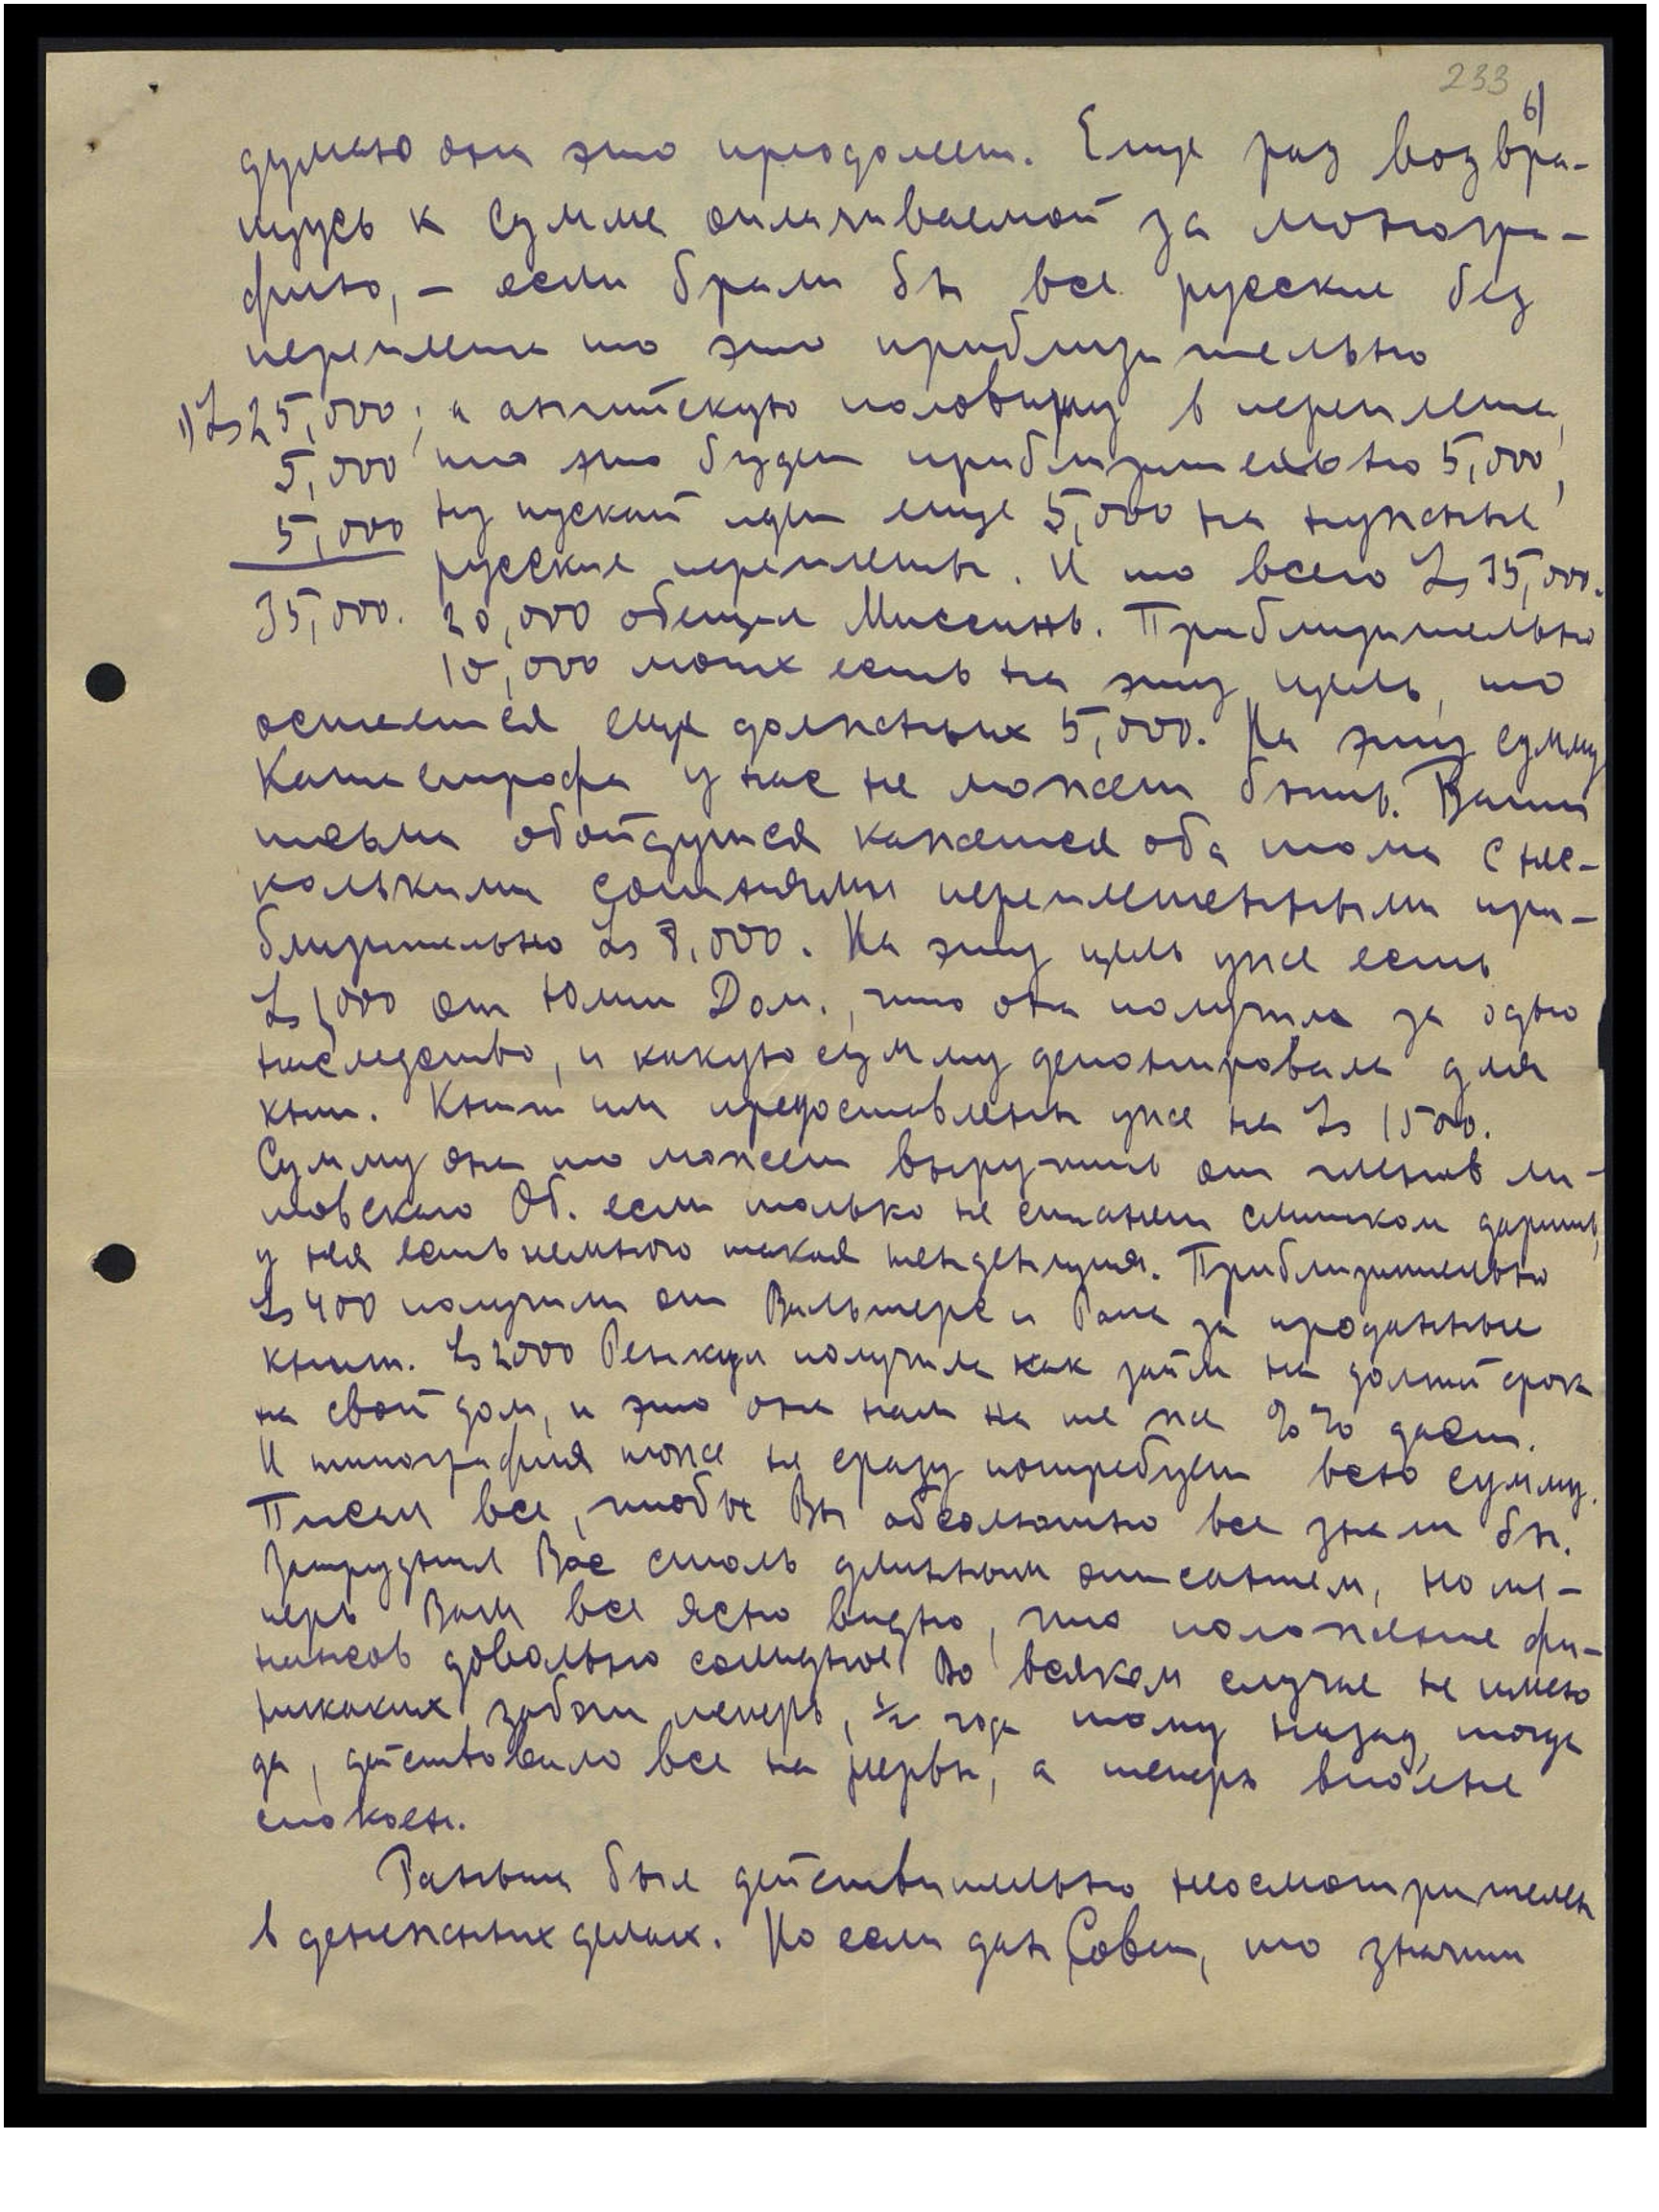 233
6)
думаю она это преодолеет. Еще раз возвра-
щусь к сумме оплачиваемой за моногра-
фию, – если брали бы все русские без
переплета то это приблизительно
1) Ls 25,000; а английскую половину в переплете,
5,000 то это будет приблизительно 5,000,
5,000 ну пускай идет еще 5,000 на нужные
русские переплеты. И то всего Ls 35,000.
35,000. 20,000 обещал Миссинь. Приблизительно
10,000 моих есть на эту цель, то
останется еще должных 5,000. На эту сумму
Катастрофа у нас не может быть. Ваши
письма обойдутся кажется оба тома с нес-
колькими сотнями переплетенными при-
близительно Ls 7,000. На эту цель уже есть
Ls 1000 от Юлии Дом., что она получила за одно
наследство, и какую сумму депонировала для
книг. Книги им предоставлены уже на Ls 1500.
Сумму она то может выручить от членов ли-
товского Об. если только не станет слишком дарить,
у нея есть немного такая тенденция. Приблизительно
Ls 400 получили от Вальтерс и Рапа за проданные
книги. Ls 2000 Ренкуль получила как займ на долгий срок
на свой дом, и это она нам на те же %% дает.
И типография тоже не сразу потребует всю сумму.
Писал все, чтобы Вы абсолютно все знали бы.
Затруднил Вас столь длинным описанием, но те-
перь Вам все ясно видно, что положение фи-
нансов довольно солидное. Во всяком случае не имею
никаких забот теперь, ½ года тому назад, тогда
да, действовало все на нервы, а теперь вполне
спокоен.
Раньше был действительно неосмотрителен
в денежных делах. Но если дан Совет, то значит